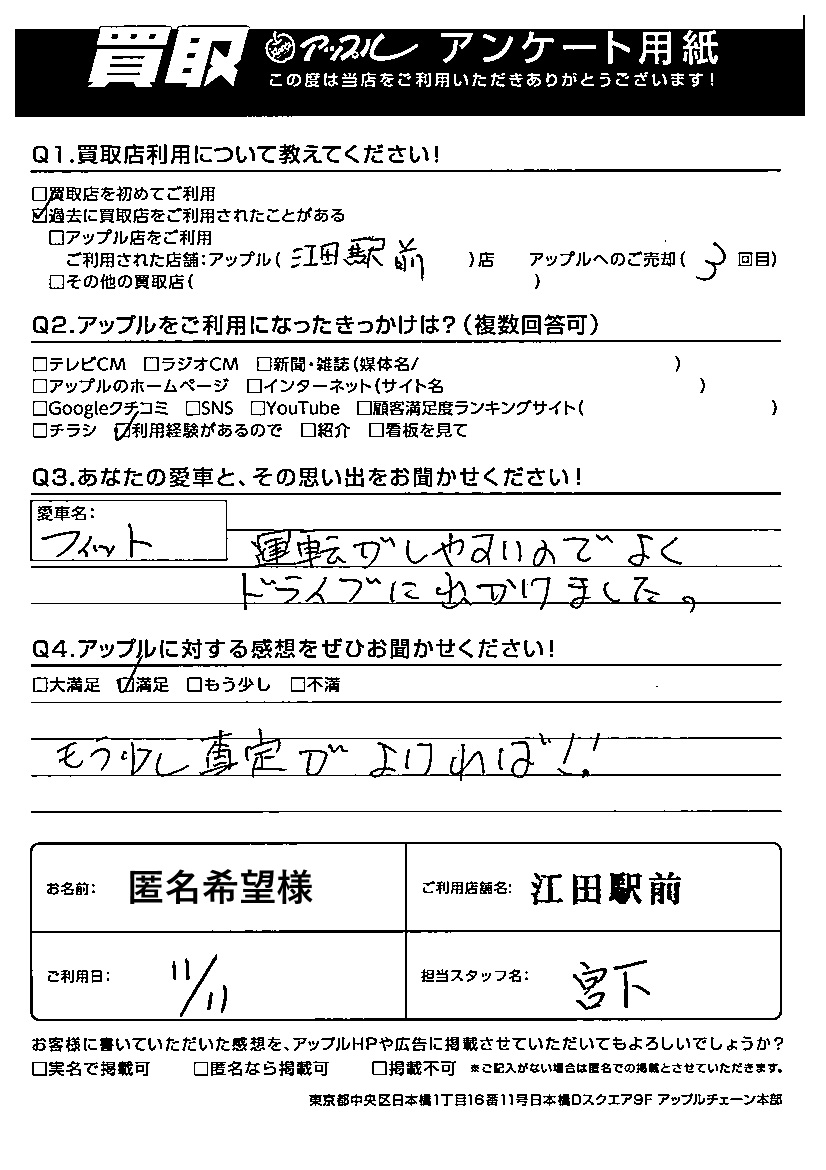 買取 アップル アンケート用紙
この度は当店をご利用いただきありがとうございます!
Q1.買取店利用について教えてください!
□買取店を初めてご利用
☑過去に買取店をご利用されたことがある
□アップル店をご利用
ご利用された店舗:アップル( 江田駅前 )店 アップルへのご売却( 3 回目)
□その他の買取店( )
Q2.アップルをご利用になったきっかけは?(複数回答可)
□テレビCM □ラジオCM □新聞・雑誌(媒体名/ )
□アップルのホームページ □インターネット(サイト名 )
□Googleクチコミ □SNS □YouTube □顧客満足度ランキングサイト( )
□チラシ ☑利用経験があるので □紹介 □看板を見て
Q3.あなたの愛車と、その思い出をお聞かせください!
愛車名:
フィット
運転がしやすいのでよく
ドライブに出かけました。
Q4.アップルに対する感想をぜひお聞かせください!
□大満足 ☑満足 □もう少し □不満
もう少し査定がよければ!!
お名前: 匿名希望様 ご利用店舗名: 江田駅前
ご利用日: 11/11 担当スタッフ名: 宮下
お客様に書いていただいた感想を、アップルHPや広告に掲載させていただいてもよろしいでしょうか?
□実名で掲載可 □匿名なら掲載可 □掲載不可 ※ご記入がない場合は匿名での掲載とさせていただきます。
東京都中央区日本橋1丁目16番11号日本橋Dスクエア9F アップルチェーン本部